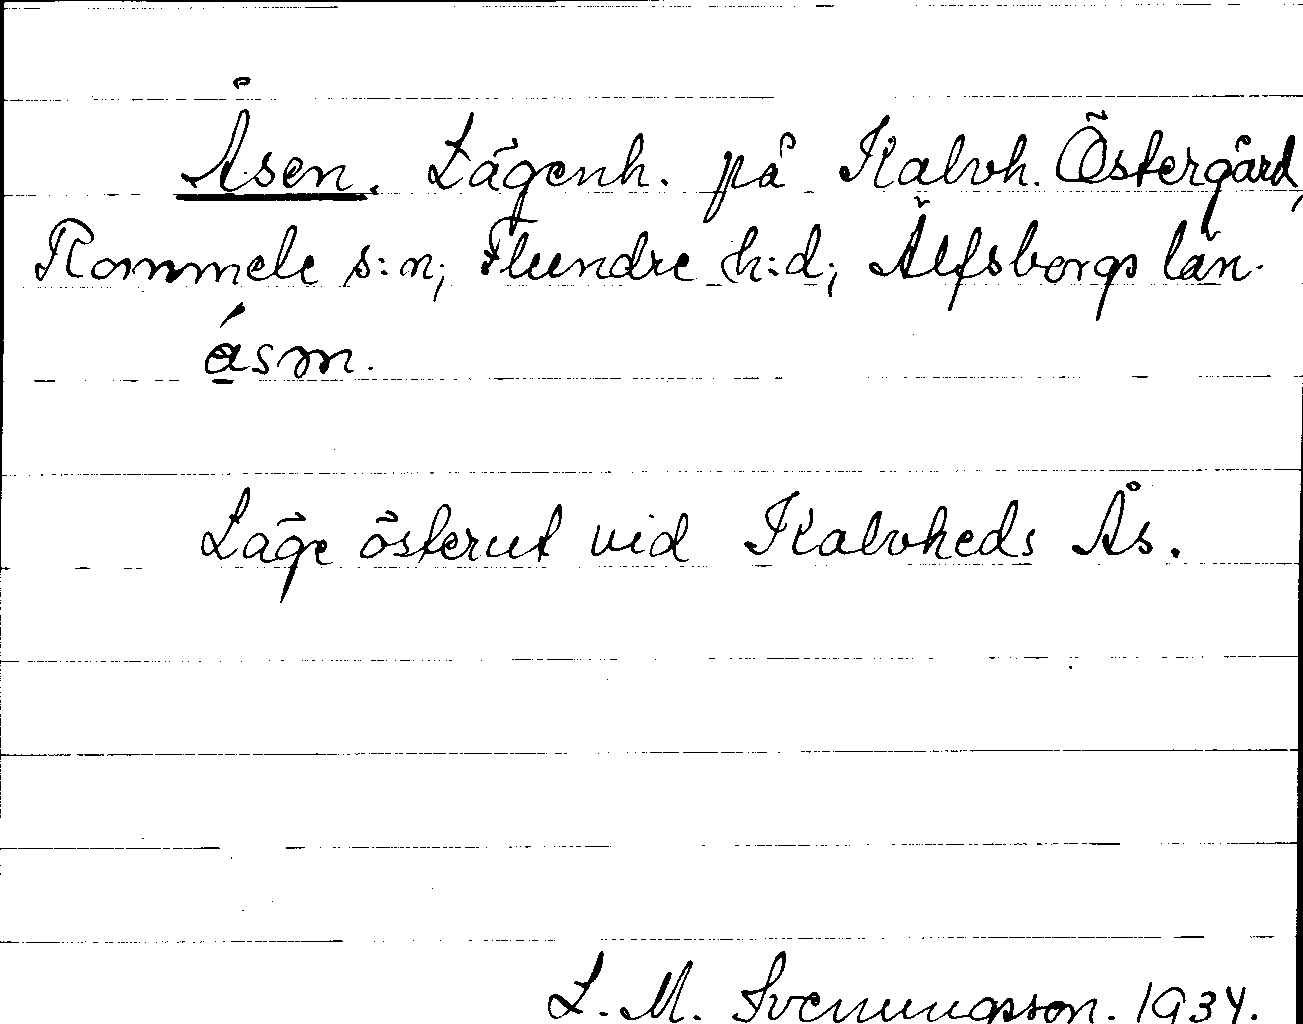 Åsen. Lägenh. på Kalvh. Östergård,
Rommele s:n; Flundre h:d; Älfsborgs län.
ásm.
Läge österut vid Kalvheds Ås.
L. M. Svenungsson. 1934.